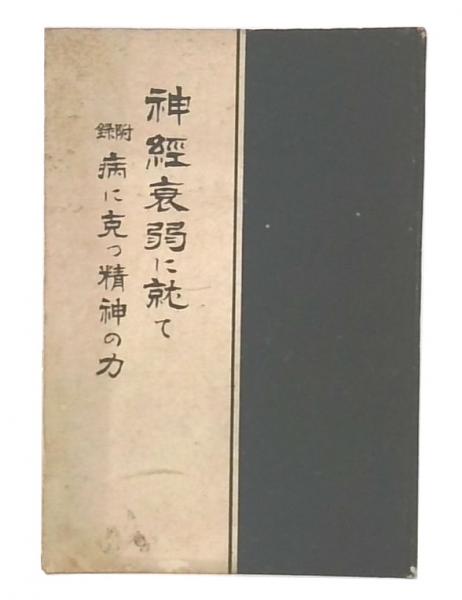 神經衰弱に就て
附録 病に克つ精神の力